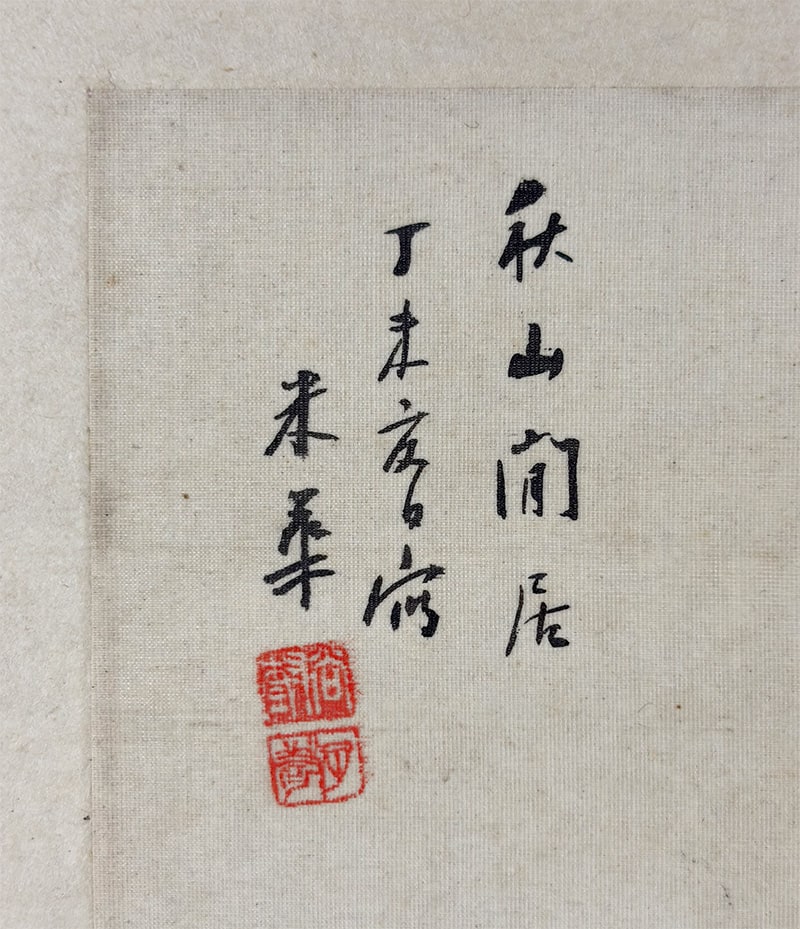 秋山閒居
丁未夏日寫
米華